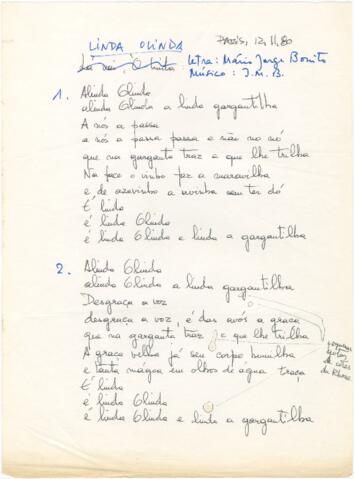 LINDA OLINDA PARIS, 12.11.80
Letra: Mário Jorge Bonito
Música: J.M.B.
1. Alinda Olinda
alinda Olinda a linda gargantilha
A nós a passa
a nós a passa passa e não no nó
que na garganta traz e que lhe trilha
Na face o vinho faz a maravilha
e de azevinho a avinha sem ter dó
É linda
é linda Olinda
é linda Olinda e linda a gargantilha
2. Alinda Olinda
alinda Olinda a linda gargantilha
Desgraça a voz
desgraça a voz, é das avós a graça
que na garganta traz e que lhe trilha
A graça velha já seu corpo humilha
e tanta mágoa em olhos de água traça
É linda
é linda Olinda
é linda Olinda e linda a gargantilha